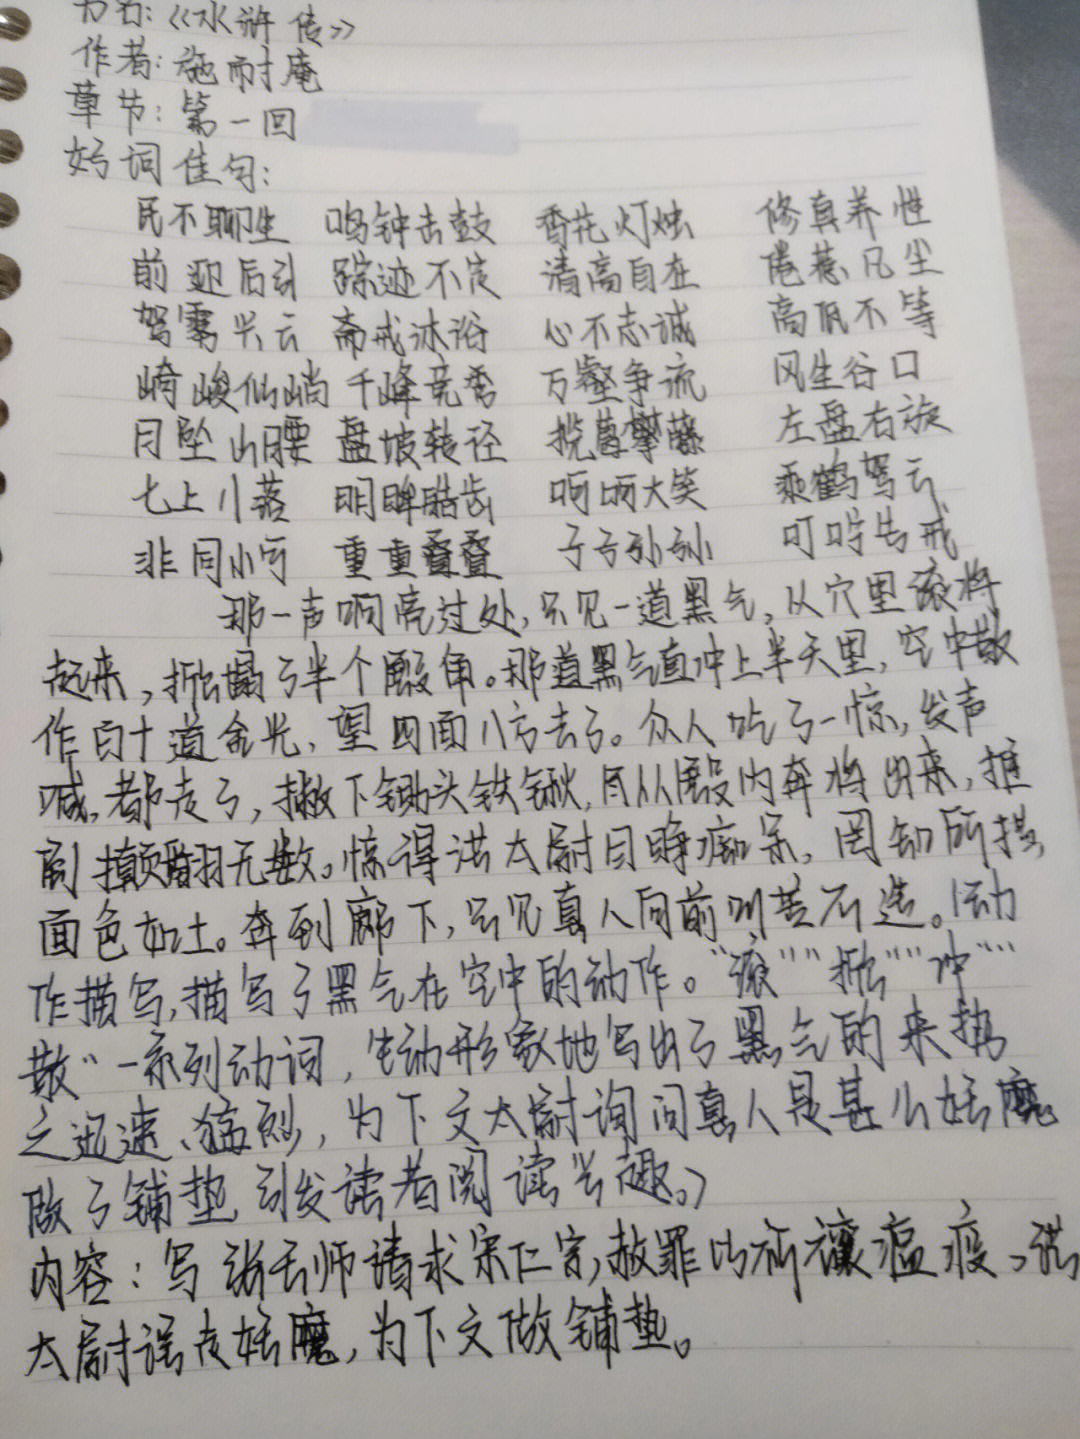 书名:《水浒传》
作者:施耐庵
章节:第一回
好词佳句:
民不聊生 鸣钟击鼓 香花灯烛 修真养性
前迎后引 踪迹不定 清高自在 倦惹凡尘
驾雾兴云 斋戒沐浴 心不志诚 高低不等
崎峻似峭 千峰竞秀 万壑争流 风生谷口
月坠山腰 盘坡转径 揽葛攀藤 左盘右旋
七上八落 明眸皓齿 呵呵大笑 乘鹤驾云
非同小可 重重叠叠 子子孙孙 叮咛告戒
那一声响亮过处,只见一道黑气,从穴里滚将
起来,掀塌了半个殿角。那道黑气直冲上半天里,空中散
作百十道金光,望四面八方去了。众人吃了一惊,发声
喊,都走了,撇下锄头铁锹,尽从殿内奔将出来,推
倒攧翻无数。惊得洪太尉目睁痴呆,罔知所措,
面色如土。奔到廊下,只见真人向前叫苦不迭。(动
作描写,描写了黑气在空中的动作。“滚”“掀”“冲”“
散”一系列动词,生动形象地写出了黑气的来势
之迅速、猛烈,为下文太尉询问真人是甚么妖魔
做了铺垫 引发读者阅读兴趣。)
内容:写张天师请求宋仁宗,赦罪以祈禳瘟疫、洪
太尉误走妖魔,为下文做铺垫。